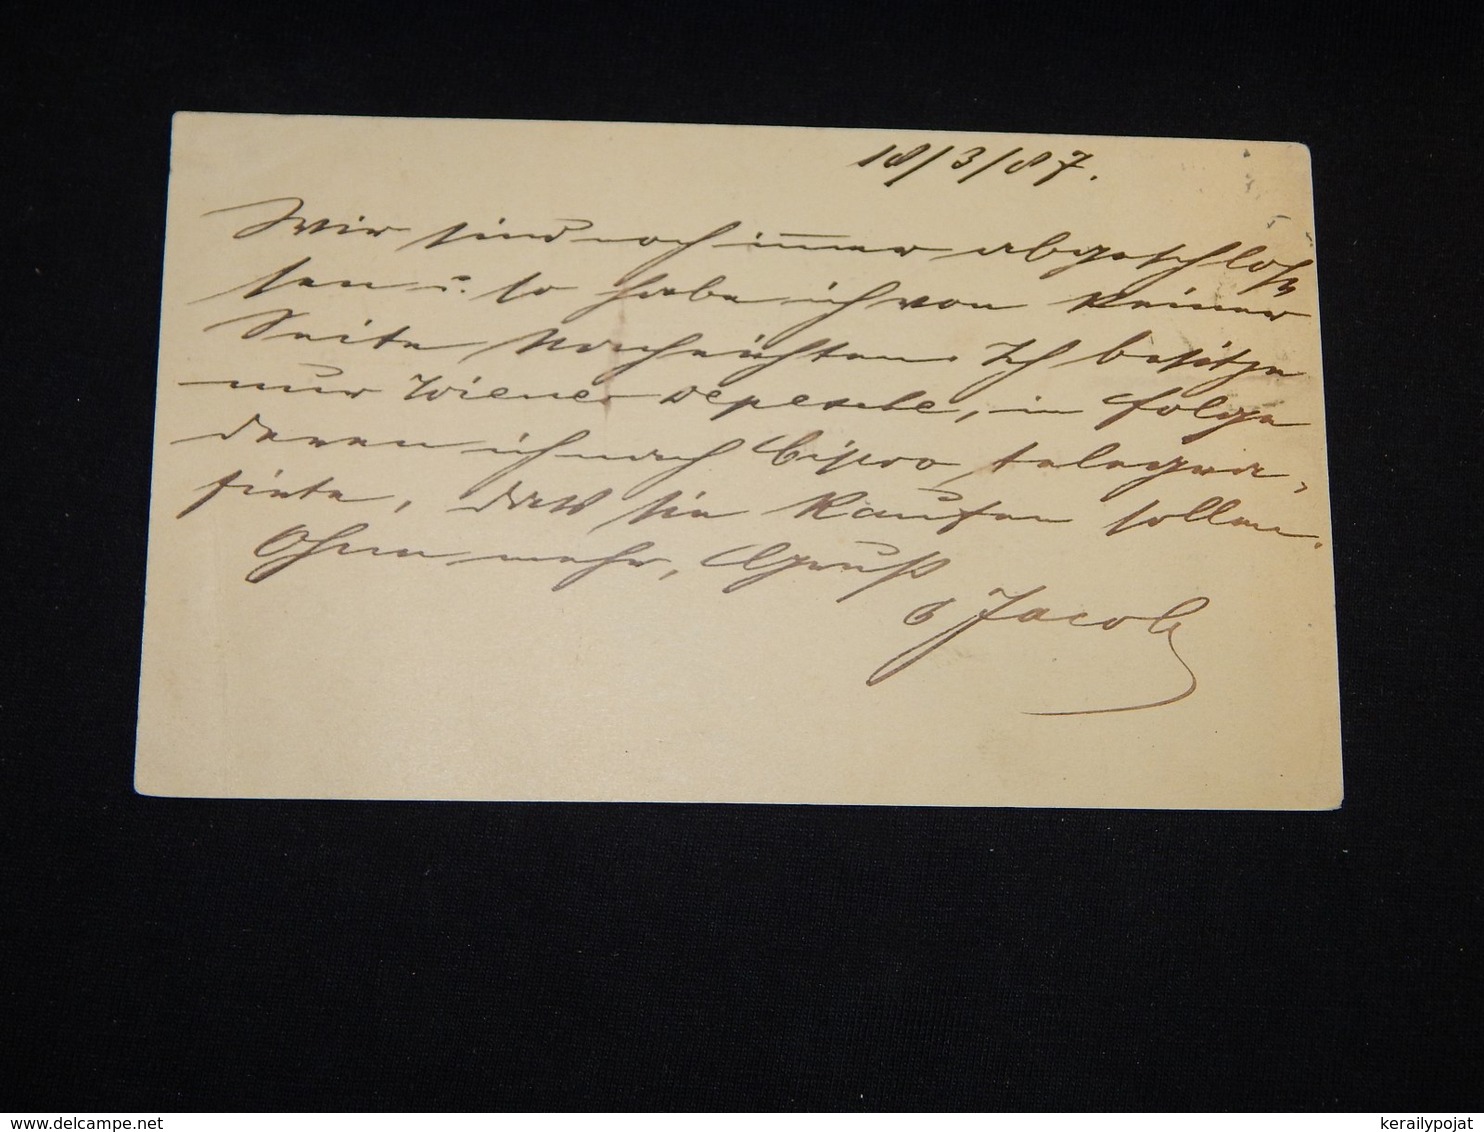 18/3/87.
Wir sind noch immer abgeschloß
sen u. so habe ich von keiner
Seite Nachrichten. Ich besitze
nur Wiener depesche, in folge
deren ich nach telegra,
firte, dass sie kaufen sollen.
Ohne mehr, Gruß
Jacob
kerailypojat